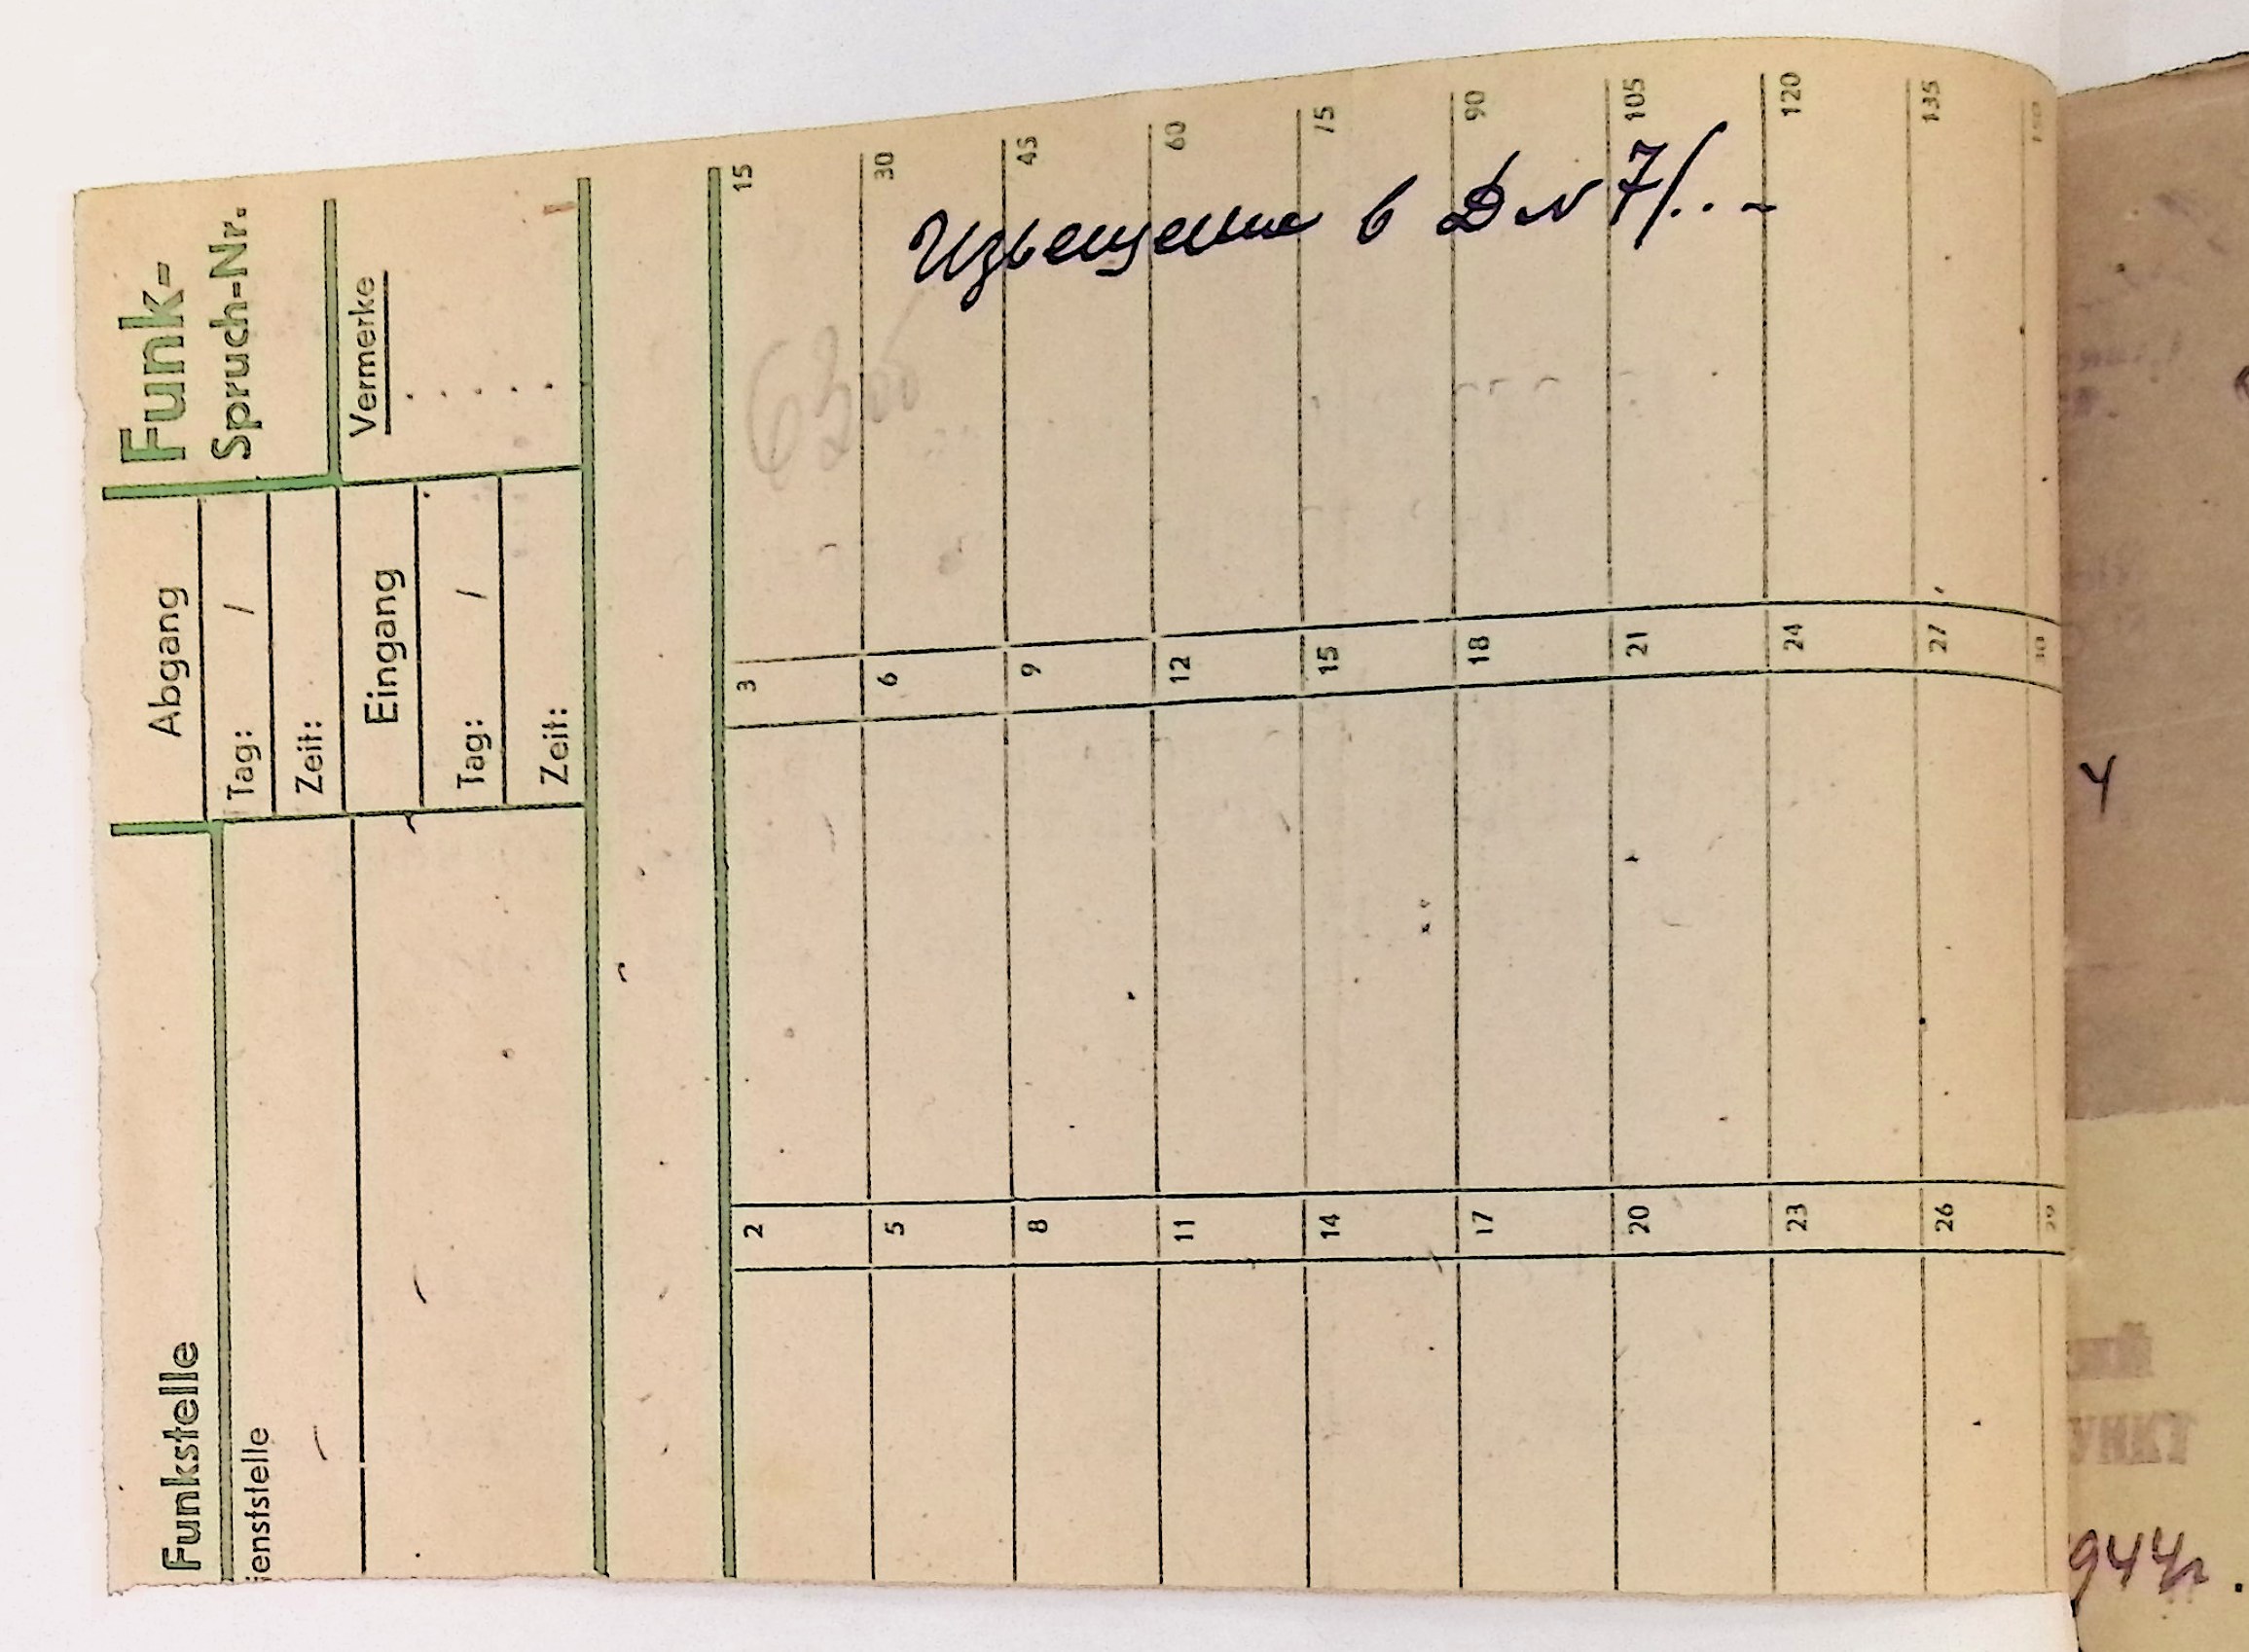 Funkstelle
ienststelle
Abgang
Tag: /
Zeit:
Eingang
Tag: /
Zeit:
Funk-
Spruch-Nr.
Vermerke
2 3 15
5 6 30
8 9 45
11 12 60
14 15 75
17 18 90
20 21 105
23 24 120
26 27 135
29 30 150
Извещение в Д № 7/..-
4
944г.